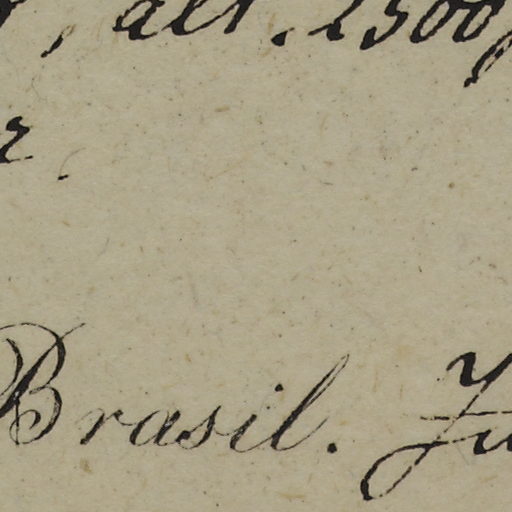 , alt. 2500
Brasil.